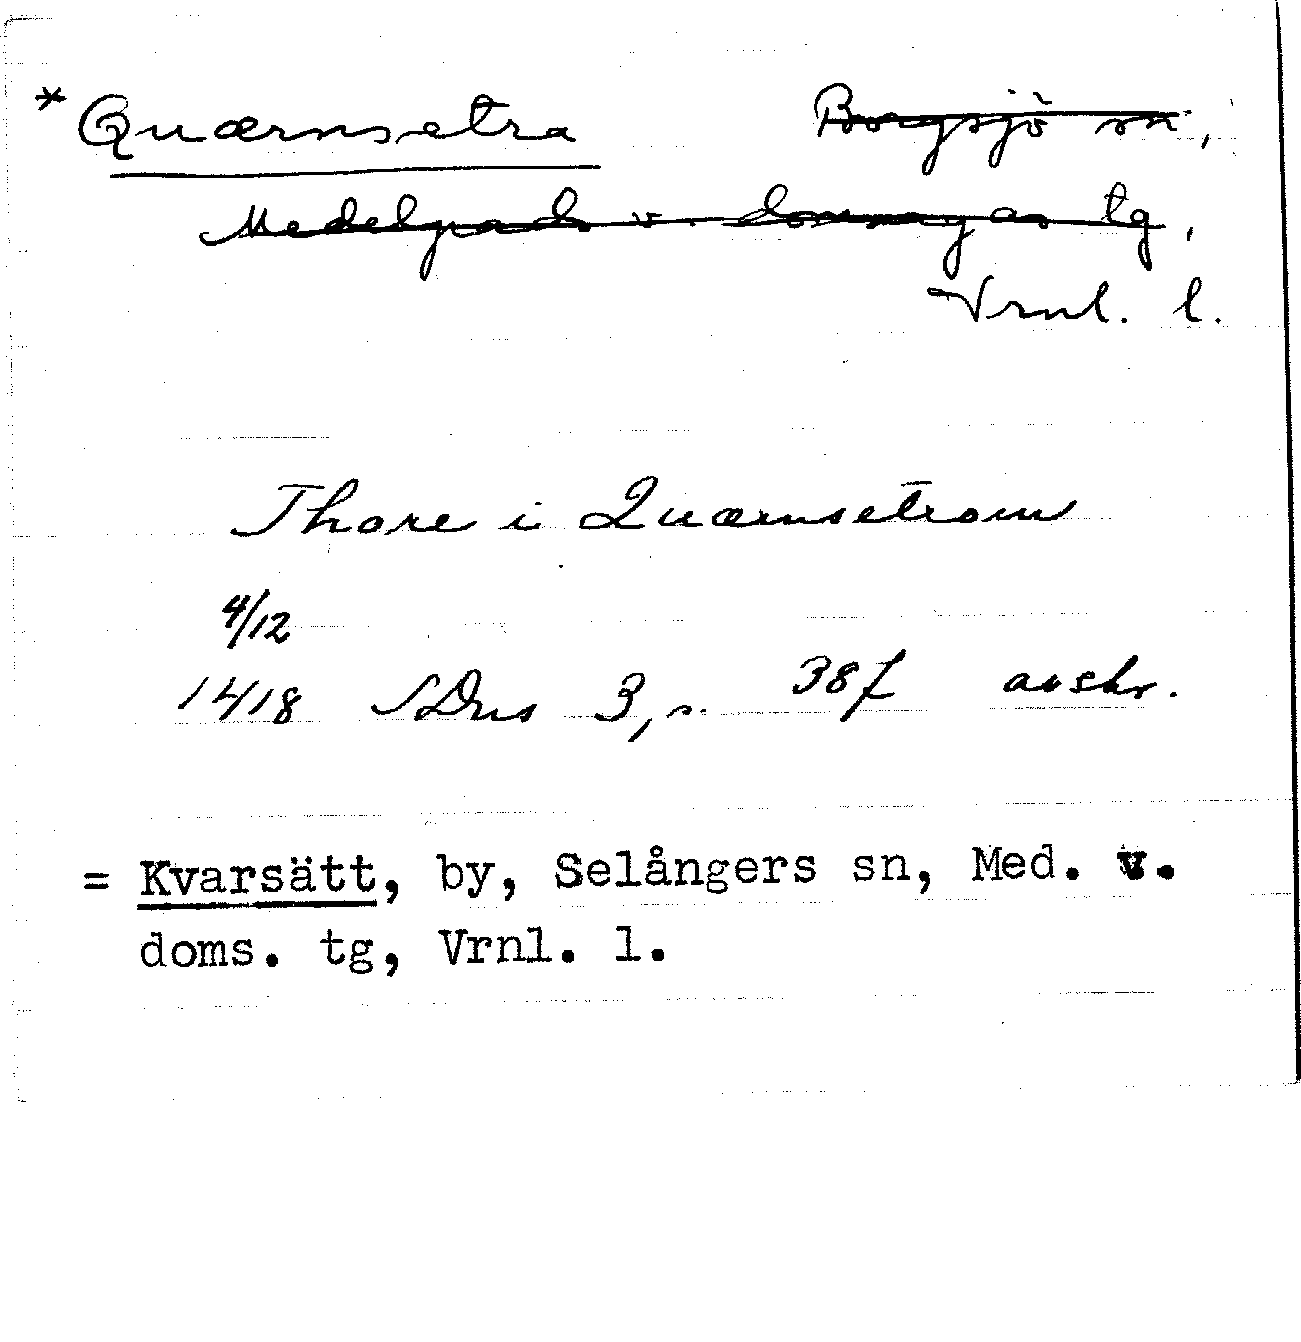 * Quærnsetra Borgsjö sn,
Medelpads v. domsagas tg,
Vrnl. l.
Thore i Quærnsetrom
4/12
1418 SDns 3, s. 38f avskr.
= Kvarsätt, by, Selångers sn, Med. v.
doms. tg, Vrnl. l.